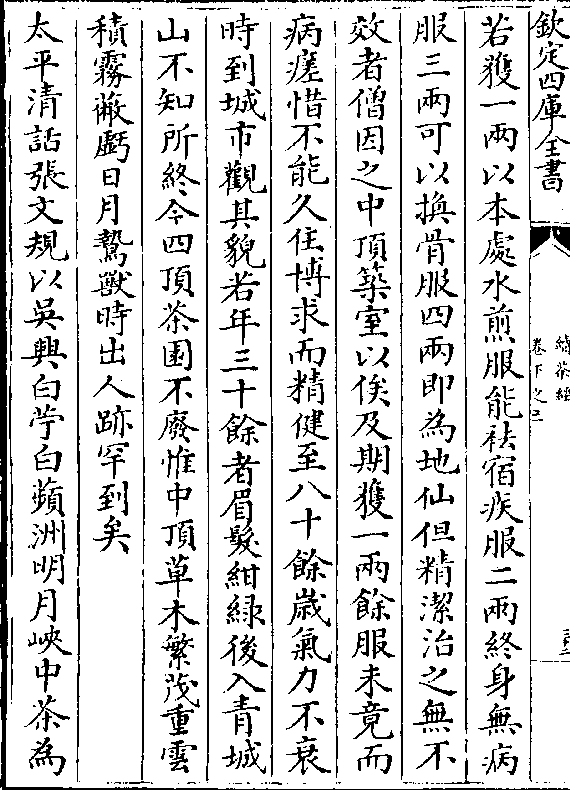 欽定四庫全書
續茶經
卷下之三
若獲一兩以本處水煎服能袪宿疾服二兩終身無病
服三兩可以換骨服四兩即為地仙但精潔治之無不
效者僧因之中頂築室以俟及期獲一兩餘服未竟而
病瘥惜不能久住博求而精健至八十餘歲氣力不衰
時到城市觀其貌若年三十餘者眉髮紺綠後入青城
山不知所終今四頂茶園不廢惟中頂草木繁茂重雲
積霧蔽虧日月鷙獸時出人跡罕到矣
太平清話張文規以吳興白苧白蘋洲明月峽中茶為